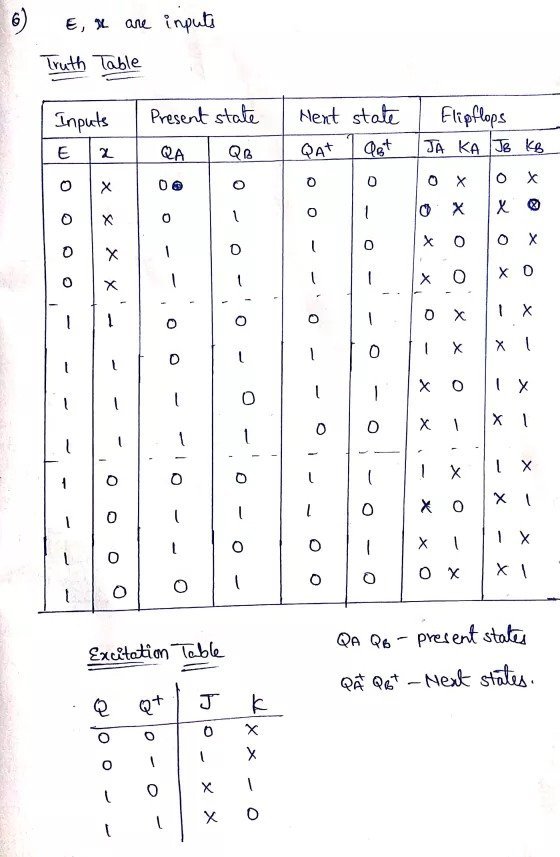 6) E, x are inputs
Truth Table
Inputs Present state Next state Flipflops
E x QA QB QA+ QB+ JA KA JB KB
0 x 0 0 0 0 0 x 0 x
0 x 0 1 0 1 0 x x
0 x 1 0 1 0 x 0 0 x
0 x 1 1 1 1 x 0 x 0
1 1 0 0 0 1 0 x 1 x
1 1 0 1 1 0 1 x x 1
1 1 1 0 1 1 x 0 1 x
1 1 1 1 0 0 x 1 x 1
1 0 0 0 1 1 1 x 1 x
1 0 1 1 1 0 x 0 x 1
1 0 1 0 0 1 x 1 1 x
1 0 0 1 0 0 0 x x 1
QA QB - present states
QA+ QB+ - Next states.
Excitation Table
Q Q+ J K
0 0 0 x
0 1 1 x
1 0 x 1
1 1 x 0